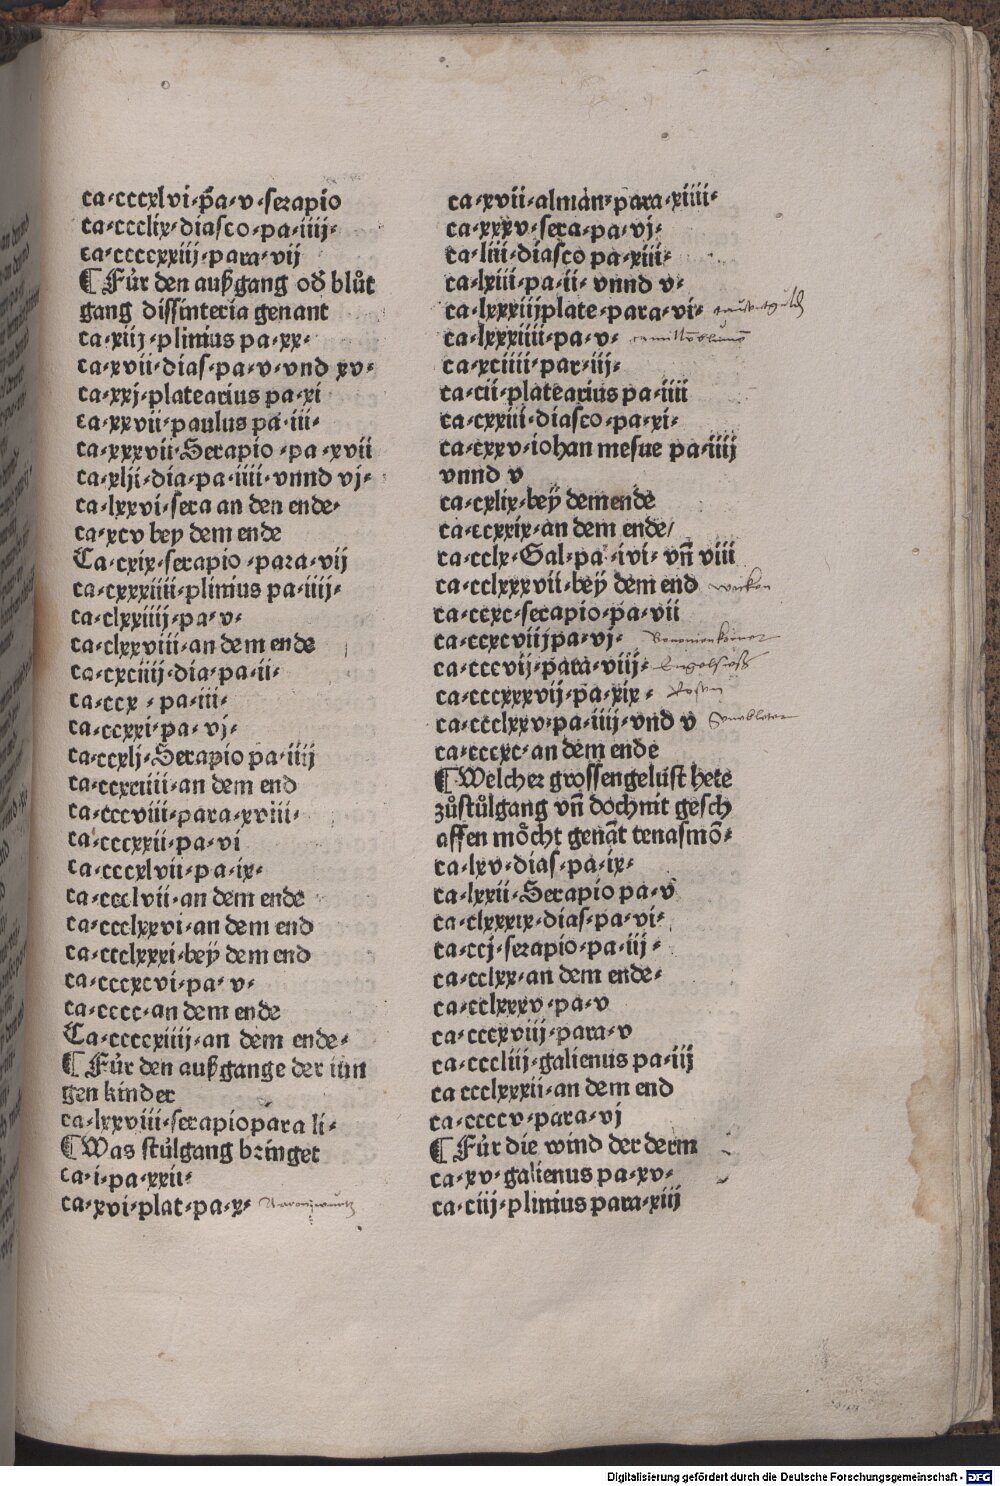 ca·cccxlvi·p̄a·v·serapio
ca·ccclix·diasco·pa·iiij·
ca·ccccxxiij·para·vij
¶Für den außgang od̕ blůt
gang dissinteria genant
ca·xiij·plinius pa·xx·
ca·xvii·dias·pa·v·vnd xv·
ca·xxj·platearius pa·xi
ca·xxvii·paulus pa·iii·
ca·xxxvii·Serapio·pa·xvii
ca·xlji·dia·pa·iiii·vnnd vj·
ca·lxxvi·sera an den ende·
ca·xcv bey dem ende
Ca·cxix·serapio·para·vij
ca·cxxxiiii·plinius pa·iiij·
ca·clxxiiij·pa·v·
ca·clxxviii·an dem ende
ca·cxciiij·dia·pa·ii·
ca·ccx·pa·iii·
ca·ccxxi·pa·vj·
ca·ccxlj·Serapio pa·iiij
ca·ccxciiii·an dem end
ca·cccviii·para·xviii·
ca·cccxxii·pa·vi
ca·cccxlvii·pa·ix·
ca·ccclvii·an dem ende
ca·ccclxxvi·an dem end
ca·ccclxxxi·bey dem end
ca·cccxcvi·pa·v·
ca·cccc·an dem ende
Ca·ccccxiiij·an dem ende·
¶Für den außgange der iun
gen kinder
ca·lxxviii·serapio para li·
¶Was stůlgang bringet
ca·i·pa·xxii·
ca·xvi·plat·pa·x·
ca·xvii·alman·para·xiiii·
ca·xxxv·sera·pa·vj·
ca·liii·diasco pa·xiii·
ca·lxiii·pa·ii·vnnd v·
ca·lxxxiij plate·para·vi·
ca·lxxxiiii·pa·v·
ca·xciiii·par·iij·
ca·cii·platearius pa·iiii
ca·cxxiii·diasco·pa·xi·
ca·cxxv·iohan mesue pa·iiij
vnnd v
ca·cxlix·bey dem ende
ca·ccxxix·an dem ende/
ca·cclx·Gal·pa·ivi·vn̄ viii
ca·cclxxxvii·bey dem end
ca·ccxc·serapio·pa·vii
ca·ccxcviij pa·vj·
ca·cccvij·para·viij·
ca·cccxxxvij·pa·xix·
ca·ccclxxv·pa·iiij·vnd v
ca·cccxc·an dem ende
¶Welcher grossen gelüst hete
zůstůlgang vn̄ doch nit gesch
affen möcht genāt tenasmō·
ca·lxv·dias·pa·ix·
ca·lxxii·Serapio pa·v
ca·clxxxix·dias·pa·vi·
ca·ccj·serapio·pa·iij·
ca·cclxx·an dem ende·
ca·cclxxxv·pa·v
ca·cccxviij·para·v
ca·cccliij·galienus pa·iij
ca ccclxxxii·an dem end
ca·ccccv·para·vj
¶Für die wind der derm
ca·xv·galienus pa·xv·
ca·ciij·plinius para·xiij
Digitalisierung gefördert durch die Deutsche Forschungsgemeinschaft · DFG